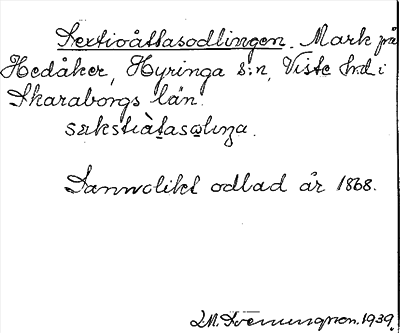 Sextioåttasodlingen. Mark på
Hedåker, Hyringa s:n, Viste hd i
Skaraborgs län.
sækstiàtasoliŋa.
Sannolikt odlad år 1868.
1939.